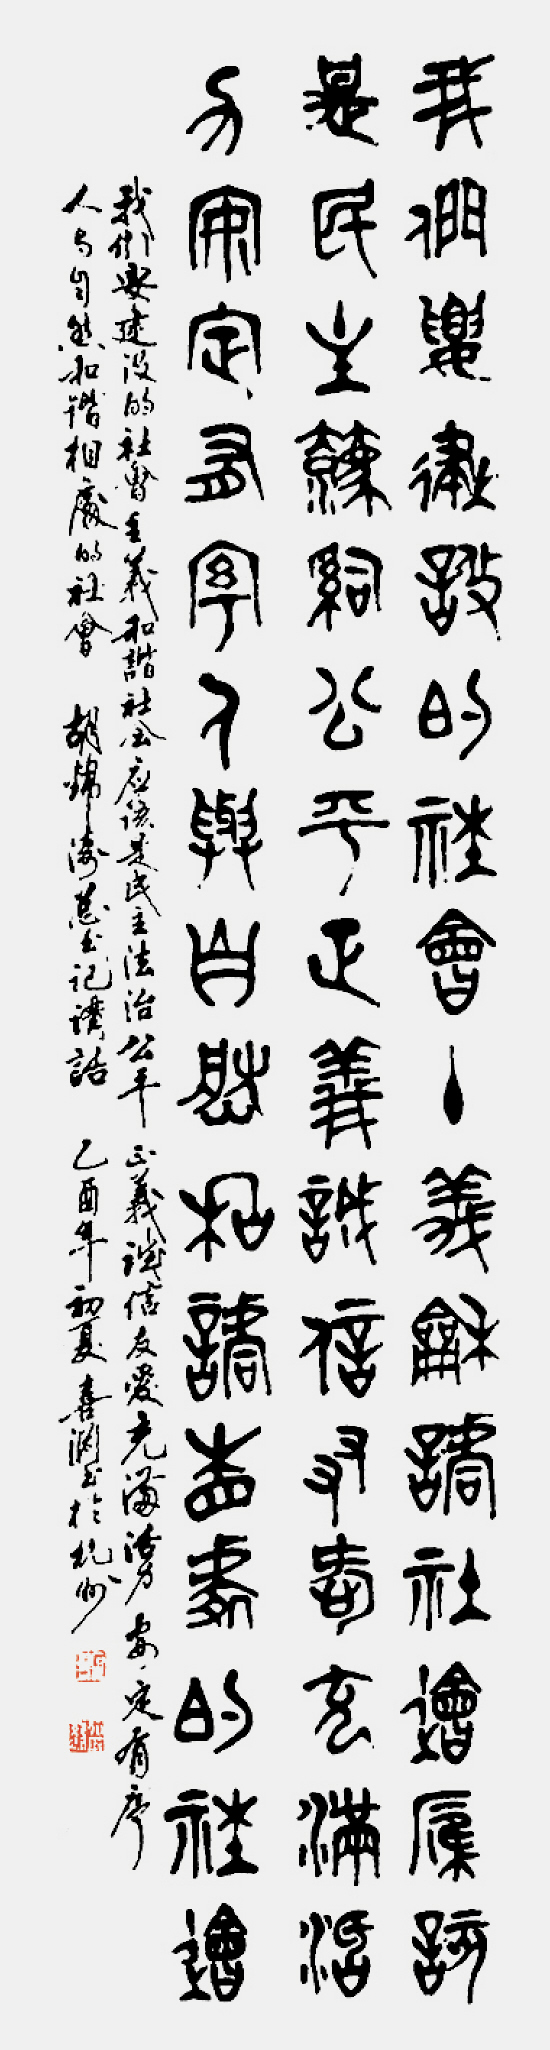 我們要建設的社會主義和諧社會應該
是民主法治公平正義誠信友愛充滿活
力安定有序人與自然和諧相處的社會
我们要建设的社會主義和諧社会应该是民主法治公平正義诚信友愛充满活力安定有序
人与自然和谐相处的社會 胡锦涛总书记講話 乙酉年初夏喜渊书於杭州